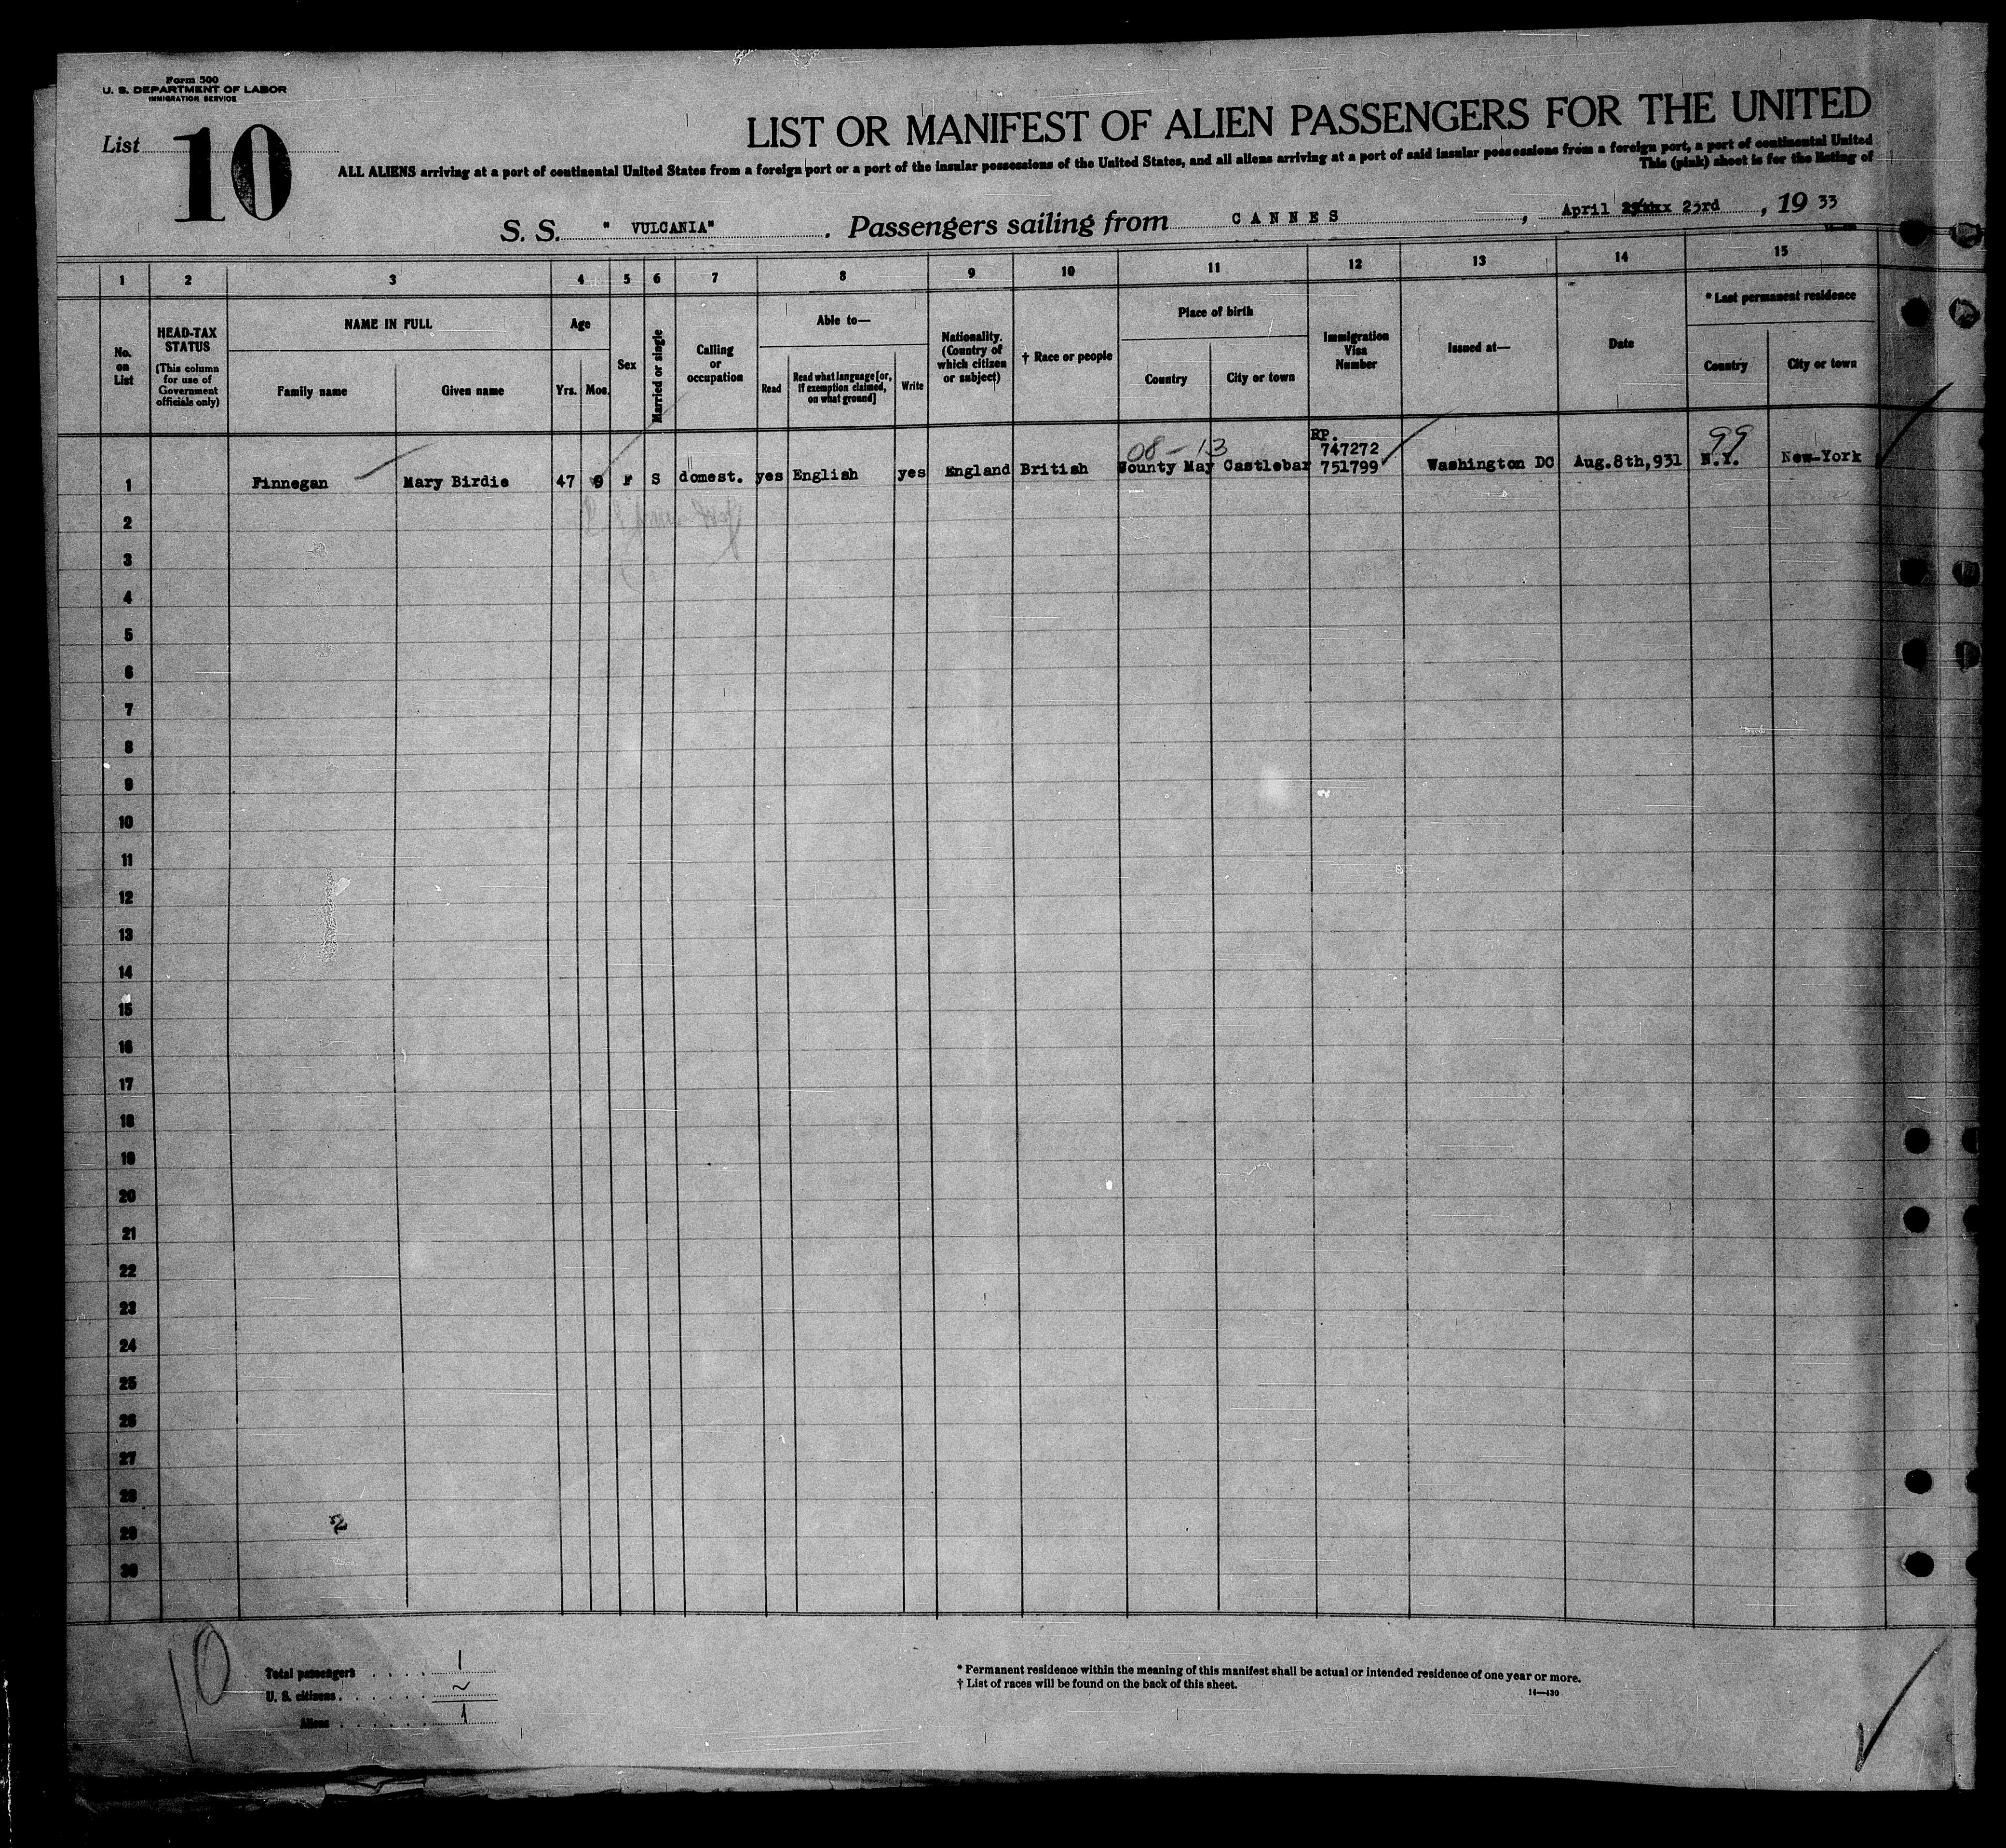 Form 500
U. S. DEPARTMENT OF LABOR
IMMIGRATION SERVICE
List 10
LIST OR MANIFEST OF ALIEN PASSENGERS FOR THE UNITED
ALL ALIENS arriving at a port of continental United States from a foreign port or a port of the insular possessions of the United States, and all aliens arriving at a port of said insular possessions from a foreign port, a port of continental United
This (pink) sheet is for the listing of
S. S. " VULCANIA" . Passengers sailing from CANNES , April 23rd , 19 33
1 2 3 4 5 6 7 8 9 10 11 12 13 14 15
No. on List
HEAD-TAX STATUS
(This column for use of Government officials only)
NAME IN FULL
Family name
Given name
Age
Yrs.
Mos.
Sex
Married or single
Calling or occupation
Able to—
Read
Read what language [or, if exemption claimed, on what ground]
Write
Nationality. (Country of which citizen or subject)
† Race or people
Place of birth
Country
City or town
Immigration Visa Number
Issued at—
Date
* Last permanent residence
Country
City or town
08-13
RP.
747272
99
1 Finnegan Mary Birdie 47 9 F S domest. yes English yes England British County May Castlebar 751799 Washington DC Aug.8th,931 N.Y. New-York
2
3
4
5
6
7
8
9
10
11
12
13
14
15
16
17
18
19
20
21
22
23
24
25
26
27
28
29
30
2
10
Total passengers . . . . 1
U. S. citizens . . . . . . ~
Aliens . . . . . . . 1
* Permanent residence within the meaning of this manifest shall be actual or intended residence of one year or more.
† List of races will be found on the back of this sheet.
14—430